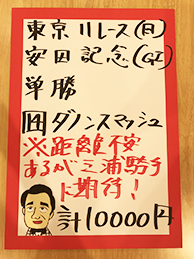 東京11レース(日)
安田記念(GI)
単勝
⑭ダノンスマッシュ
※距離不安
あるが三浦騎手
に期待!
計10000円